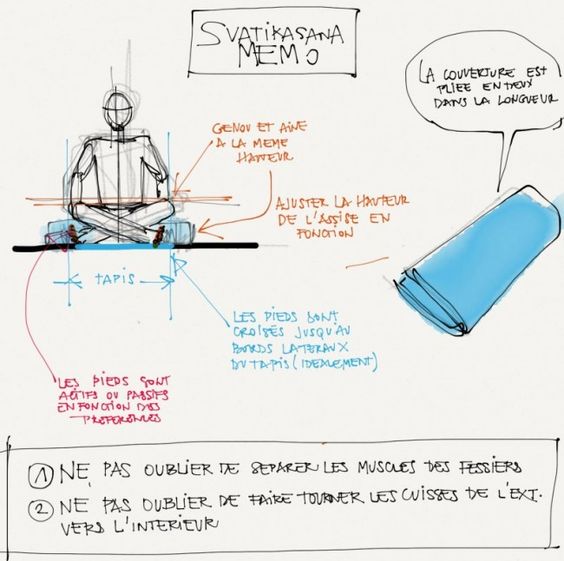 SVATIKASANA
MEMO
LA COUVERTURE EST
PLIEE EN DEUX
DANS LA LONGUEUR
GENOU ET AINE
A LA MEME
HAUTEUR
AJUSTER LA HAUTEUR
DE L'ASSISE EN
FONCTION
TAPIS
LES PIEDS SONT
CROISÉS JUSQU'AU
BORDS LATERAUX
DU TAPIS (IDEALEMENT)
LES PIEDS SONT
ACTIFS OU PASSIFS
EN FONCTION DES
PREFERENCES
1 NE PAS OUBLIER DE SEPARER LES MUSCLES DES FESSIERS
2 NE PAS OUBLIER DE FAIRE TOURNER LES CUISSES DE L'EXT.
VERS L'INTERIEUR